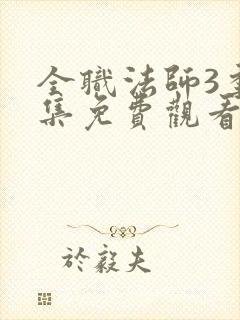 全職法師3季
集免費觀看
於毅夫